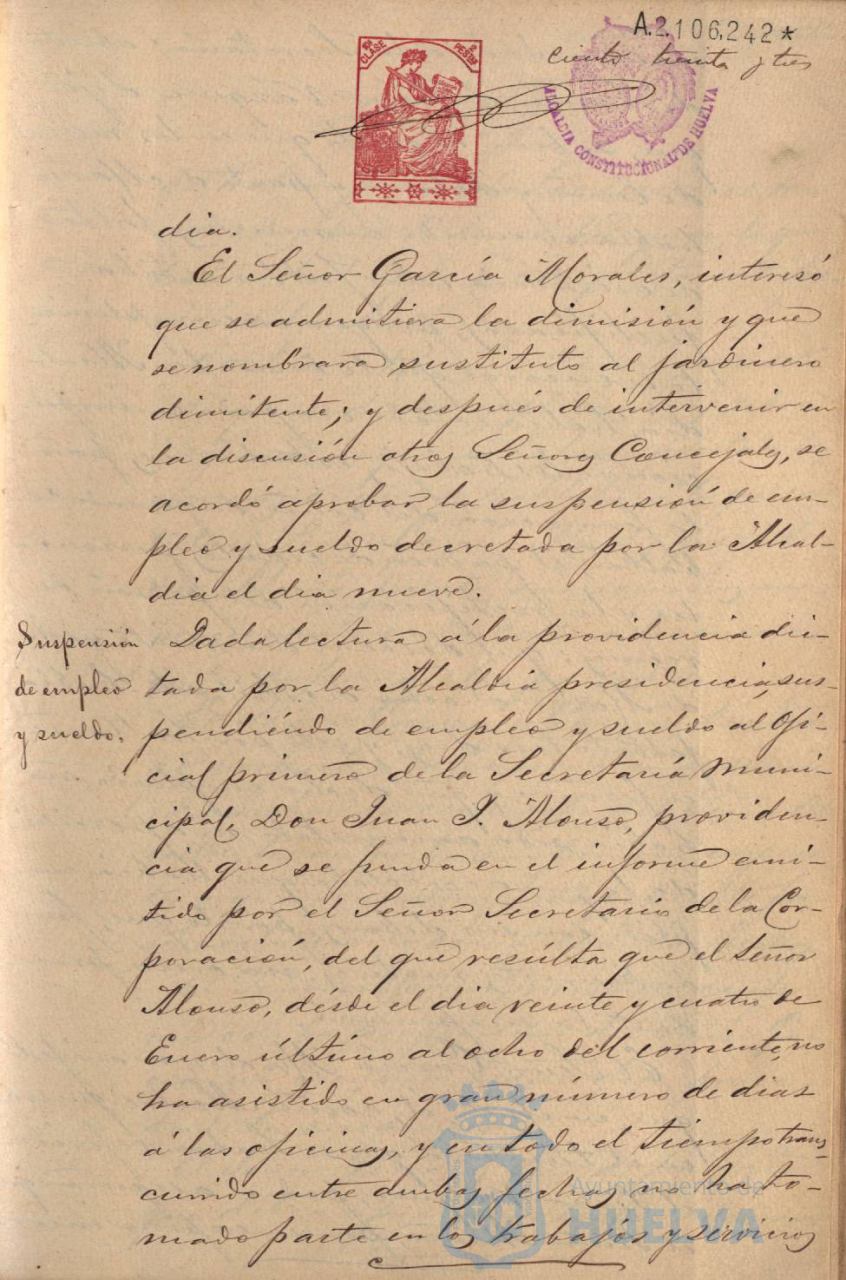 A.2.106,242*
ciento treinta y tres
10ª CLASE 2 PESETAS
ALCALDIA CONSTITUCIONAL DE HUELVA
dia.
El Señor García Morales, interesó
que se admitiera la dimisión y que
se nombrara sustituto al jardinero
dimitente; y después de intervenir en
la discusión otros Señores Concejales, se
acordó aprobar la suspensión de em-
pleo y sueldo decretada por la Alcal-
dia el dia nueve.
Suspensión
de empleo
y sueldo.
Dada lectura á la providencia dic-
tada por la Alcaldia presidencia, sus-
pendiéndo de empleo y sueldo al Ofi-
cial primero de la Secretaría Muni-
cipal, Don Juan J. Alonso, providen-
cia que se funda en el informe emi-
tido por el Señor Secretario de la Cor-
poración, del que resúlta que el Señor
Alonso, désde el dia veinte y cuatro de
Enero último al ocho del corriente, no
ha asistido en gran número de dias
á las oficinas, y en todo el tiempo trans-
currido entre ambas fechas no ha to-
mado parte en los trabajos y servicios
Ayuntamiento de
HUELVA